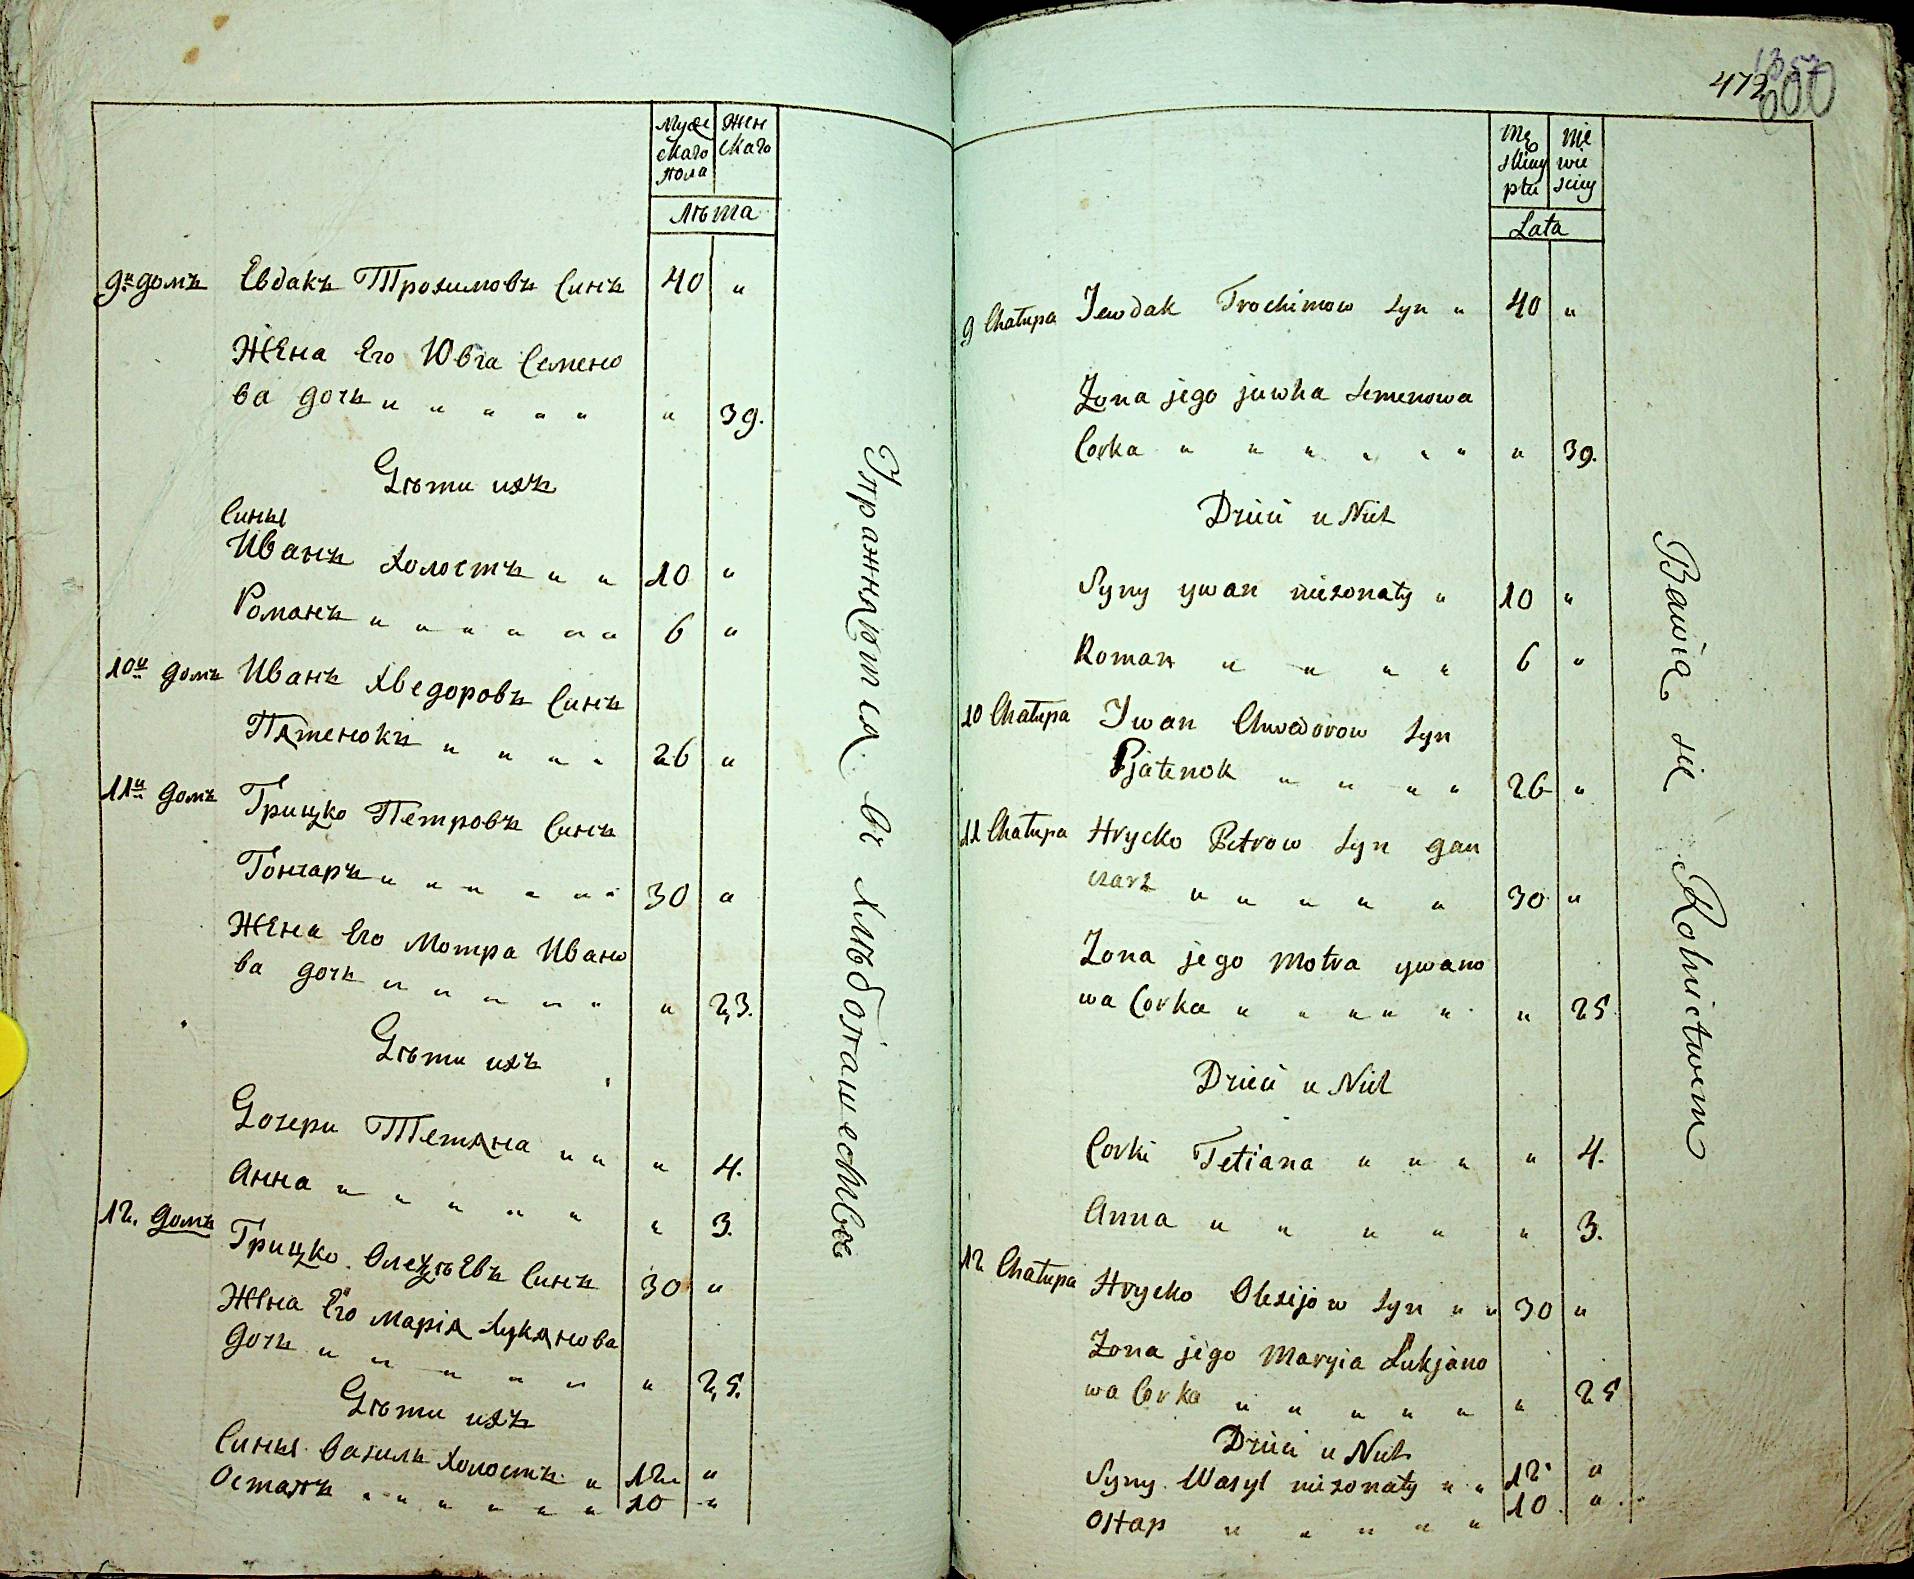 Муже Жен
скаго скаго
пола
Лѣта
9й домъ Евдакъ Трохимовъ Синъ 40 "
Жена ЕгоЮвга Семено
ва дочь " " " " " " 39.
Дѣти ихъ
Сины
Иванъ холостъ " " 10 "
Романъ " " " " " " 6 "
10й домъ Иванъ Хведоровъ Синъ
Пятенокъ " " " " 26 "
11й домъ Грицко Петровъ Синъ
Гончаръ " " " " " " 30 "
Жена Его Мотра Ивано
ва дочь " " " " " " 23.
Дѣти ихъ
Дочери Тетяна " " " 4.
Анна " " " " " " 3.
12. домъ Грицко Олексѣевъ Синъ 30 "
Жена Его Марія Лукянова
дочь " " " " " " 25.
Дѣти ихъ
Сины Василь холостъ " 12 "
Остапъ " " " " " " 10 "
Упражняются въ хлѣбопашествѣ
472
Mę Nie
skiey wie
płci sciey
Lata
9 Chatupa Jewdak Trochimow Syn " 40 "
Zona jego juwha Semenowa
Corka " " " " " " " 39.
Dzieci u Nich
Syny ywan niezonaty " 10 "
Roman " " " " 6 "
10 Chatupa Iwan Chwedorow Syn
Pjatenok " " " " 26 "
11 Chatupa Hrycko Petrow Syn gan
czarz " " " " " 30 "
Zona jego Motra ywano
wa Corka " " " " " " 25
Dzieci u Nich
Corki Tetiana " " " " 4.
Anna " " " " " 3.
12 Chatupa Hrycko Olexijow Syn " " 30 "
Zona jego Maryia Łukjano
wa Corka " " " " " " 25
Dzieci u Nich
Syny Wasyl niezonaty " " 12 "
Ostap " " " " 10 "
Bawią się Rolnictwem